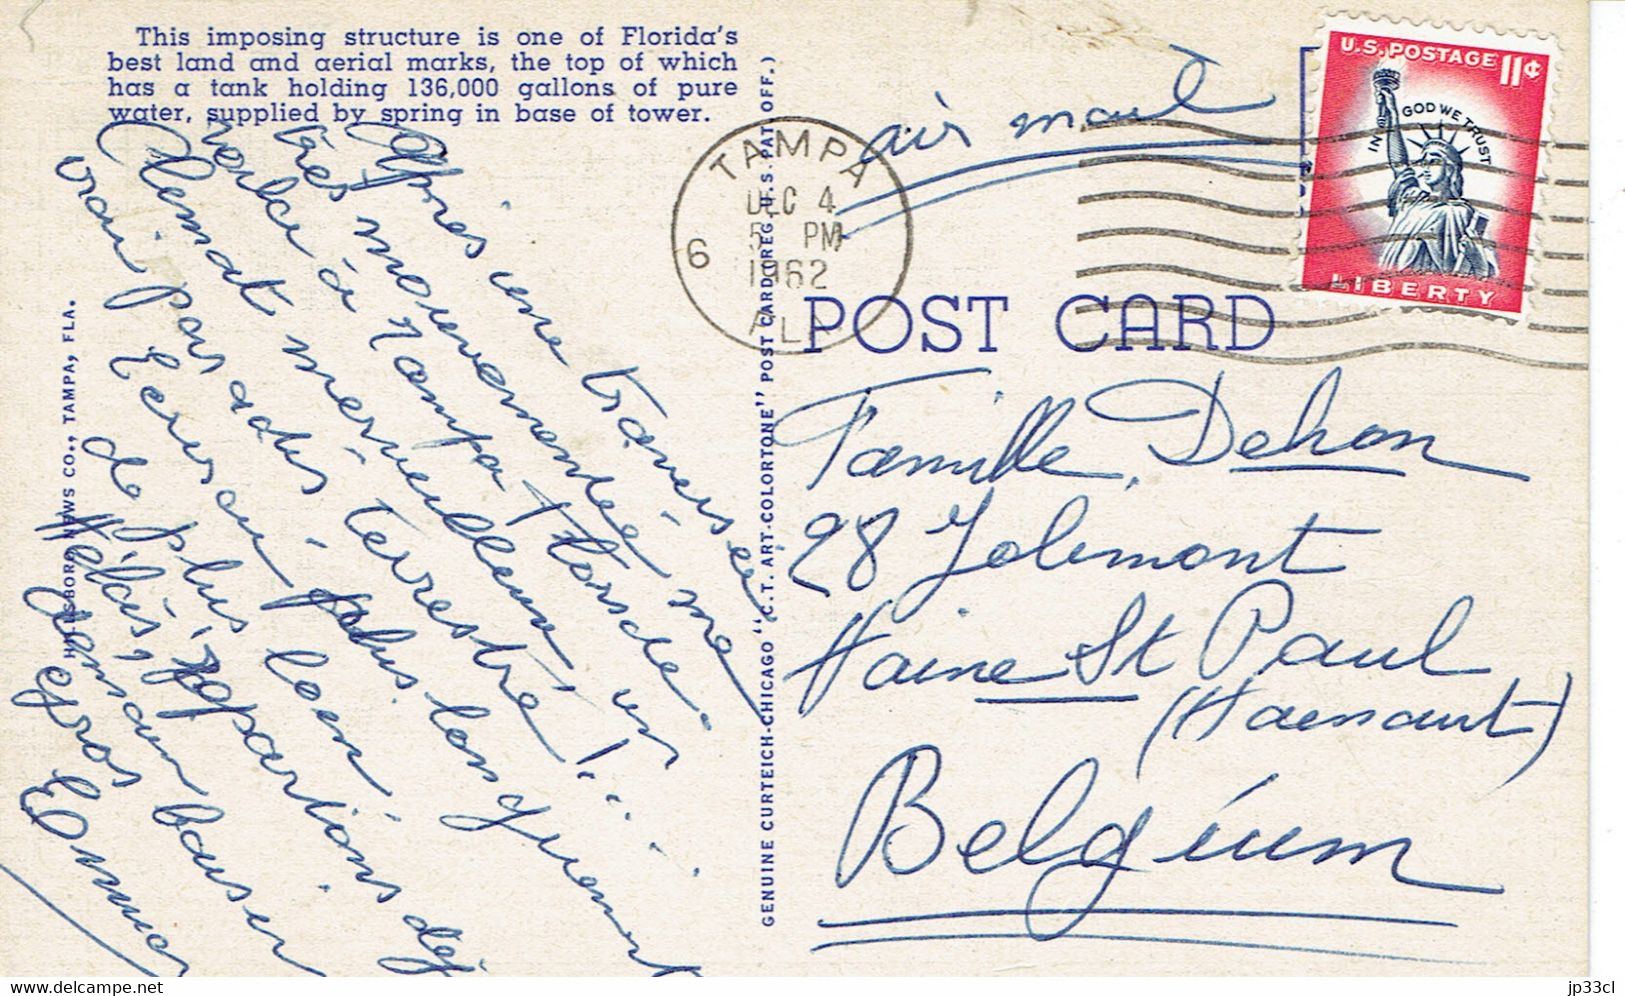 This imposing structure is one of Florida's
best land and aerial marks, the top of which
has a tank holding 136,000 gallons of pure
water, supplied by spring in base of tower.
Après une traversée
très mouvementée me
voilà à Tampa Floride.
Climat merveilleux un
vrai paradis terrestre!....
Ecrirai plus longuement
de plus loin.
Hélas, repartions déjà
demain baiser
gros
HILLSBORO NEWS CO., TAMPA, FLA.
GENUINE CURTEICH-CHICAGO "C.T. ART-COLORTONE" POST CARD (REG. U.S. PAT. OFF.)
air mail
TAMPA
DEC 4
5 PM
1962
6
FLA
U.S. POSTAGE 11¢
IN GOD WE TRUST
LIBERTY
POST CARD
Famille Dehon
98 Jolimont
Haine St Paul
(Hainaut)
Belgium
jp33cl